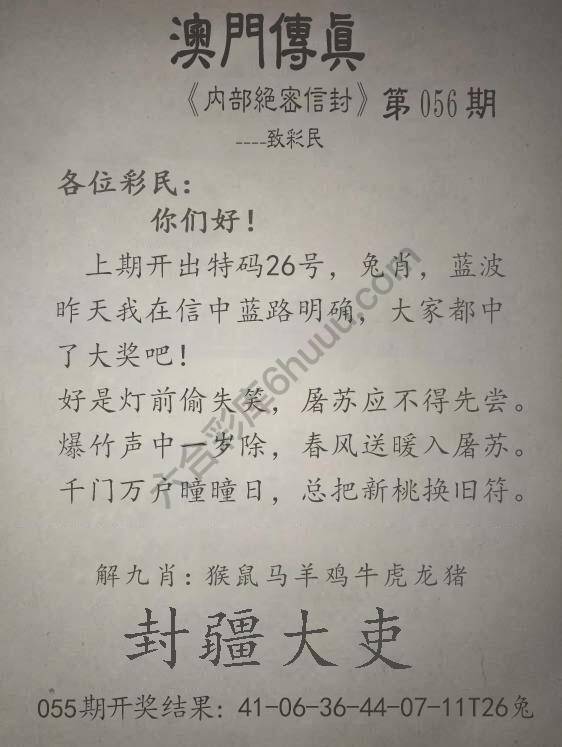 澳門傳眞
《内部絕密信封》第056期
----致彩民
各位彩民：
你们好！
上期开出特码26号，兔肖，蓝波
昨天我在信中蓝路明确，大家都中
了大奖吧！
好是灯前偷失笑，屠苏应不得先尝。
爆竹声中一岁除，春风送暖入屠苏。
千门万户曈曈日，总把新桃换旧符。
六合彩库6huuu.com
解九肖：猴鼠马羊鸡牛虎龙猪
封疆大吏
055期开奖结果：41-06-36-44-07-11T26兔